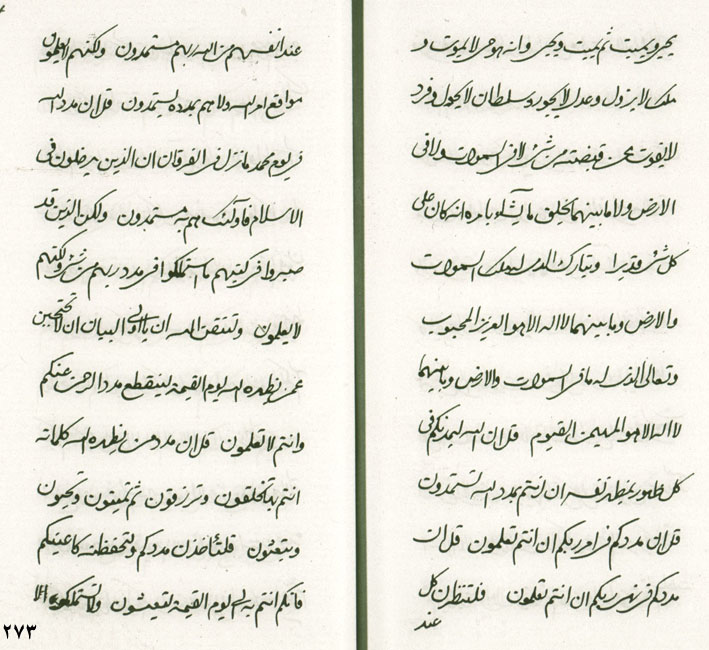 يحيي ويميت ثم يميت ويحيي وانه هو حي لا يموت و
ملك لا يزول وعدل لا يجور وسلطان لا يحول وفرد
لا يفوت عن قبضته من شيء لا في السموات ولا في
الارض ولا ما بينهما يخلق ما يشاء بامره انه كان على
كل شيء قديرا وتبارك الذي له ملك السموات
والارض وما بينهما لا اله الا هو العزيز المحبوب
وتعالى الذي له ما في السموات والارض وما بينهما
لا اله الا هو المهيمن القيوم قل ان الله ليمدنكم في
كل ظهور بمظهر نفسه ان انتم بمدد الله تستمدون
قل ان مددكم في امر ربكم ان انتم تعلمون قل ان
مددكم في نهي ربكم ان انتم تعلمون فلتنظرن كل
عند
عند انفسهم من الله ربهم مستمدون ولكنهم لا يعلمون
مواقع امر الله ولا هم بمدده يستمدون قل ان مدد الله
في يوم محمد ما نزل في الفرقان ان الذين يدخلون في
الاسلام فاولئك هم به مستمدون ولكن الذين قد
صبروا في كتبهم ما استملكوا في مدد ربهم من شيء ولكنهم
لا يعلمون ولتتقن الله ان يا اولي البيان ان لا تحتجبن
عمن يظهره الله يوم القيمة لينقطع مدد الرحمن عنكم
وانتم لا تعلمون قل ان مدد من يظهره الله كلماته
انتم بها تخلقون وترزقون ثم تميتون وتحيون
وتبعثون قل لتأخذن مددكم ولتحفظنه كاعينكم
فانكم انتم به الى يوم القيمة لتعيشون ولا تستملكون الا
٢٧٣